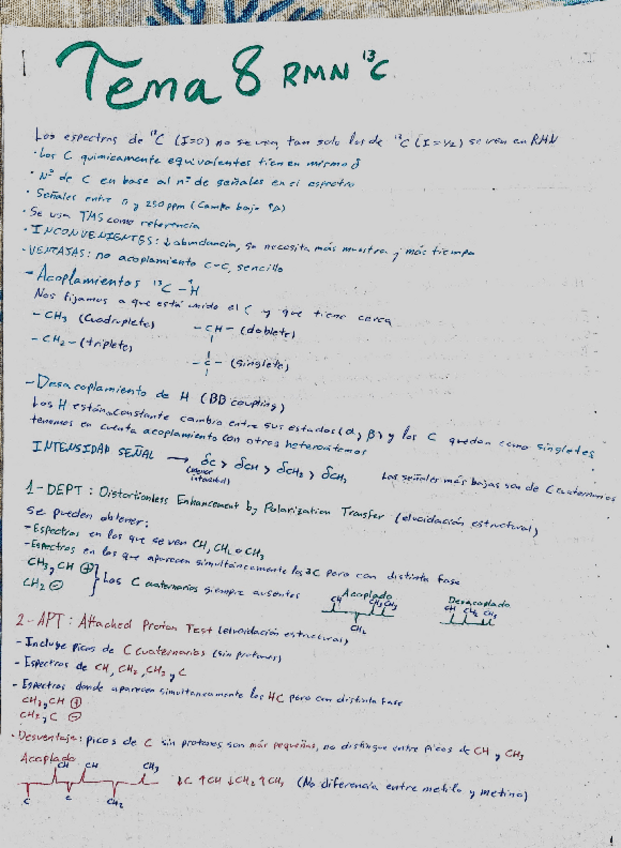 Tema 8 RMN ¹³C
Los espectros de ¹²C (I=0) no se ven, tan solo los de ¹³C (I=1/2) se ven en RMN
· Los C quimicamente equivalentes tienen mismo δ
· Nº de C en base al nº de señales en el espectro
· Señales entre 0 y 250 ppm (Campo bajo
· Se usa TMS como referencia
· INCONVENIENTES: ↓ abundancia, se necesita más muestra y más tiempo
· VENTAJAS: no acoplamiento C-C, sencillo
- Acoplamientos ¹³C - ¹H
Nos fijamos a que está unido el C y que tiene cerca
- CH₃ (Cuadruplete) - CH - (doblete)
- CH₂ - (triplete)
- C - (singlete)
- Desacoplamiento de H (BB coupling)
Los H están constante cambio entre sus estados (α y β) y los C quedan como singletes
tenemos en cuenta acoplamiento con otros heteroátomos
INTENSIDAD SEÑAL → δC > δCH > δCH₂ > δCH₃ Las señales más bajas son de C cuaternarios
(menor intensidad)
1- DEPT: Distortionless Enhancement by Polarization Transfer (elucidación estructural)
Se pueden obtener:
- Espectros en los que se ven CH, CH₂ o CH₃
- Espectros en los que aparecen simultáneamente los 3C pero con distinta fase
CH₃ y CH ⊕
CH₂ ⊖ } Los C cuaternarios siempre ausentes
Acoplado
CH CH₃ CH₃
CH₂
Desacoplado
CH CH₂ CH₃
2- APT: Attached Proton Test (elucidación estructural)
- Incluye picos de C cuaternarios (sin protones)
- Espectros de CH, CH₂, CH₃ y C
- Espectros donde aparecen simultáneamente los HC pero con distinta fase
CH₃ y CH ⊕
CH₂ y C ⊖
· Desventaja: picos de C sin protones son más pequeños, no distingue entre picos de CH y CH₃
Acoplado
CH CH CH₃
C C CH₂
↓C ↑CH ↓CH₂ ↑CH₃ (No diferencia entre metilo y metino)
1